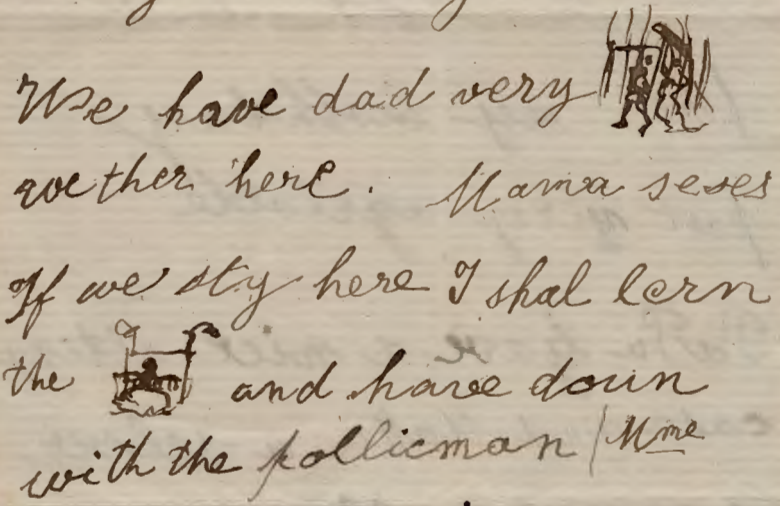 We have dad very
wether here. Mama seses
If we sty here I shal lern
the and have doun
with the pollicman / Mme